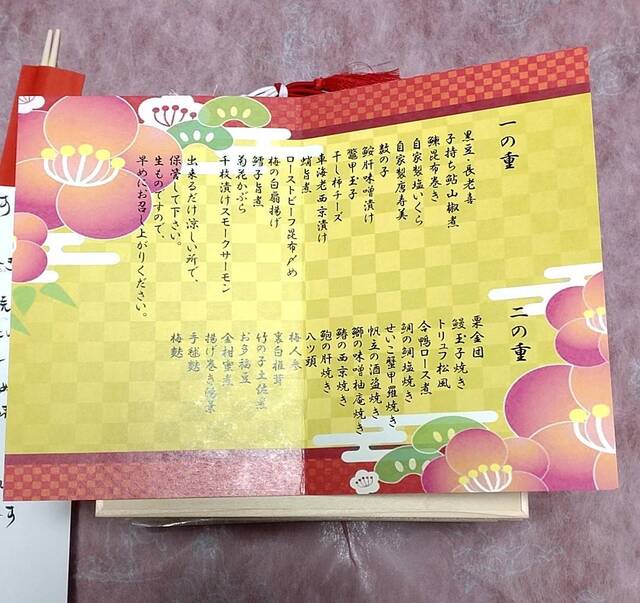 一の重
黒豆・長老喜
子持ち鮎山椒煮
鰊昆布巻き
自家製塩いくら
自家製唐寿美
数の子
鮟肝味噌漬け
鼈甲玉子
干し柿チーズ
車海老西京漬け
蛸旨煮
ローストビーフ昆布〆め
梅の白扇揚げ
鱈子旨煮
菊花かぶら
千枚漬けスモークサーモン
出来るだけ涼しい所で、
保管して下さい。
生ものですので、
早めにお召し上がりください。
二の重
栗金団
鰻玉子焼き
トリュフ松風
合鴨ロース煮
鯛の鯛塩焼き
せいこ蟹甲羅焼き
帆立の酒盗焼き
鰤の味噌柚庵焼き
鰆の西京焼き
鮑の肝焼き
八ツ頭
梅人参
裏白椎茸
竹の子土佐煮
お多福豆
金柑蜜煮
揚げ巻き湯葉
手毬麩
梅麩